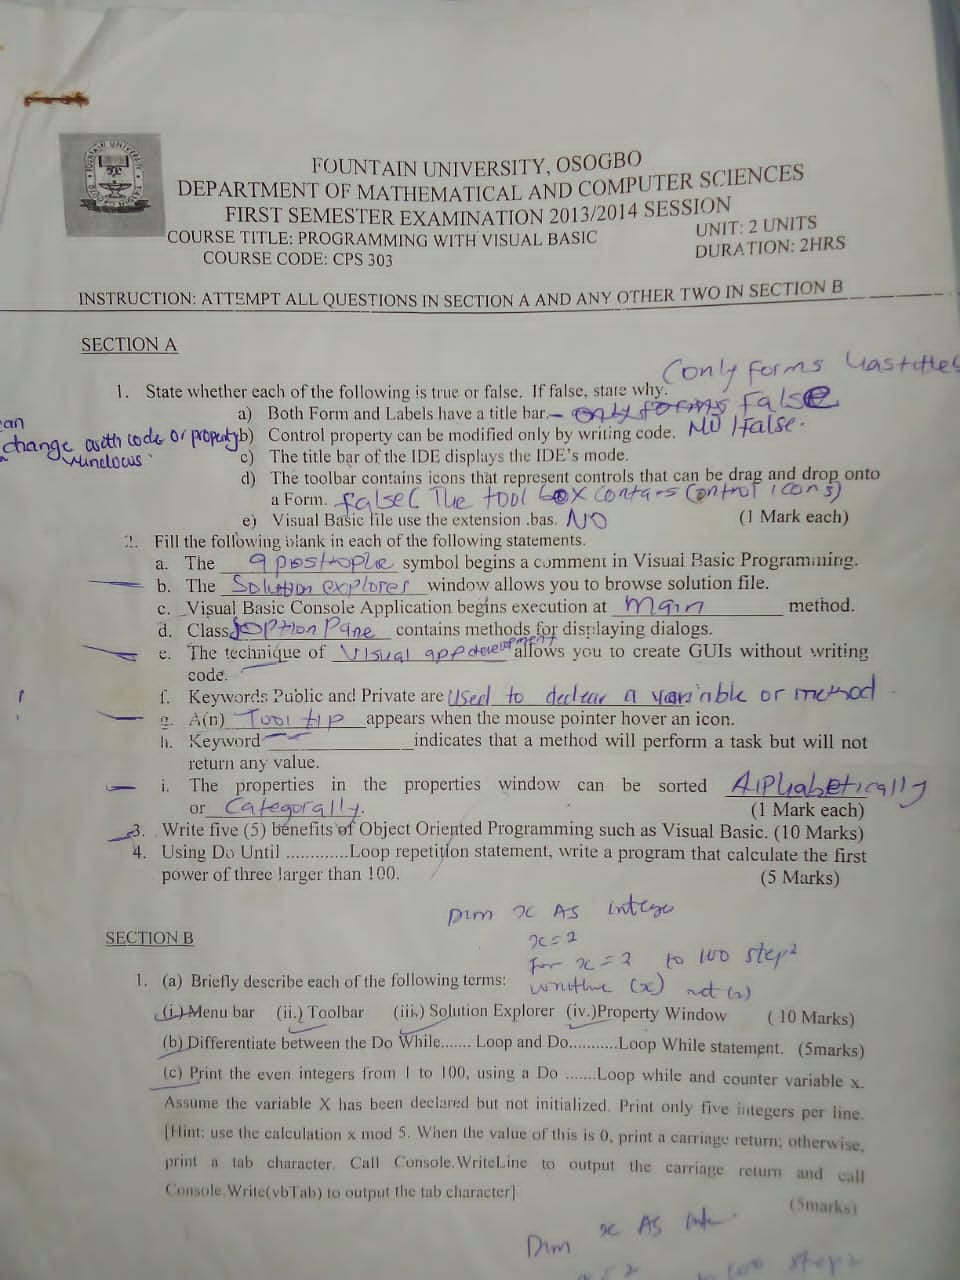 FOUNTAIN UNIVERSITY, OSOGBO
DEPARTMENT OF MATHEMATICAL AND COMPUTER SCIENCES
FIRST SEMESTER EXAMINATION 2013/2014 SESSION
COURSE TITLE: PROGRAMMING WITH VISUAL BASIC UNIT: 2 UNITS
COURSE CODE: CPS 303 DURATION: 2HRS
INSTRUCTION: ATTEMPT ALL QUESTIONS IN SECTION A AND ANY OTHER TWO IN SECTION B
SECTION A
(only forms has titles
1. State whether each of the following is true or false. If false, state why.
a) Both Form and Labels have a title bar. only forms False
can change with code or property windows
b) Control property can be modified only by writing code. No / False.
c) The title bar of the IDE displays the IDE's mode.
d) The toolbar contains icons that represent controls that can be drag and drop onto
a Form. false( The tool box contains Control icons)
e) Visual Basic file use the extension .bas. NO (1 Mark each)
2. Fill the following blank in each of the following statements.
a. The apostrophe symbol begins a comment in Visual Basic Programming.
b. The Solution explorer window allows you to browse solution file.
c. Visual Basic Console Application begins execution at main method.
d. Class JOptionPane contains methods for displaying dialogs.
e. The technique of Visual app development allows you to create GUIs without writing
code.
f. Keywords Public and Private are Used to declear a variable or method
g. A(n) Tool tip appears when the mouse pointer hover an icon.
h. Keyword ____ indicates that a method will perform a task but will not
return any value.
i. The properties in the properties window can be sorted Alphabetically
or Categorally. (1 Mark each)
3. Write five (5) benefits of Object Oriented Programming such as Visual Basic. (10 Marks)
4. Using Do Until .............Loop repetition statement, write a program that calculate the first
power of three larger than 100. (5 Marks)
Dim x As
SECTION B
x = 2
For x = 2 to 100 step 2
1. (a) Briefly describe each of the following terms: (x)
(i.) Menu bar (ii.) Toolbar (iii.) Solution Explorer (iv.)Property Window ( 10 Marks)
(b) Differentiate between the Do While....... Loop and Do...........Loop While statement. (5marks)
(c) Print the even integers from 1 to 100, using a Do .......Loop while and counter variable x.
Assume the variable X has been declared but not initialized. Print only five integers per line.
[Hint: use the calculation x mod 5. When the value of this is 0, print a carriage return; otherwise,
print a tab character. Call Console.WriteLine to output the carriage return and call
Console.Write(vbTab) to output the tab character] (5marks)
Dim x As
to 100 step 2